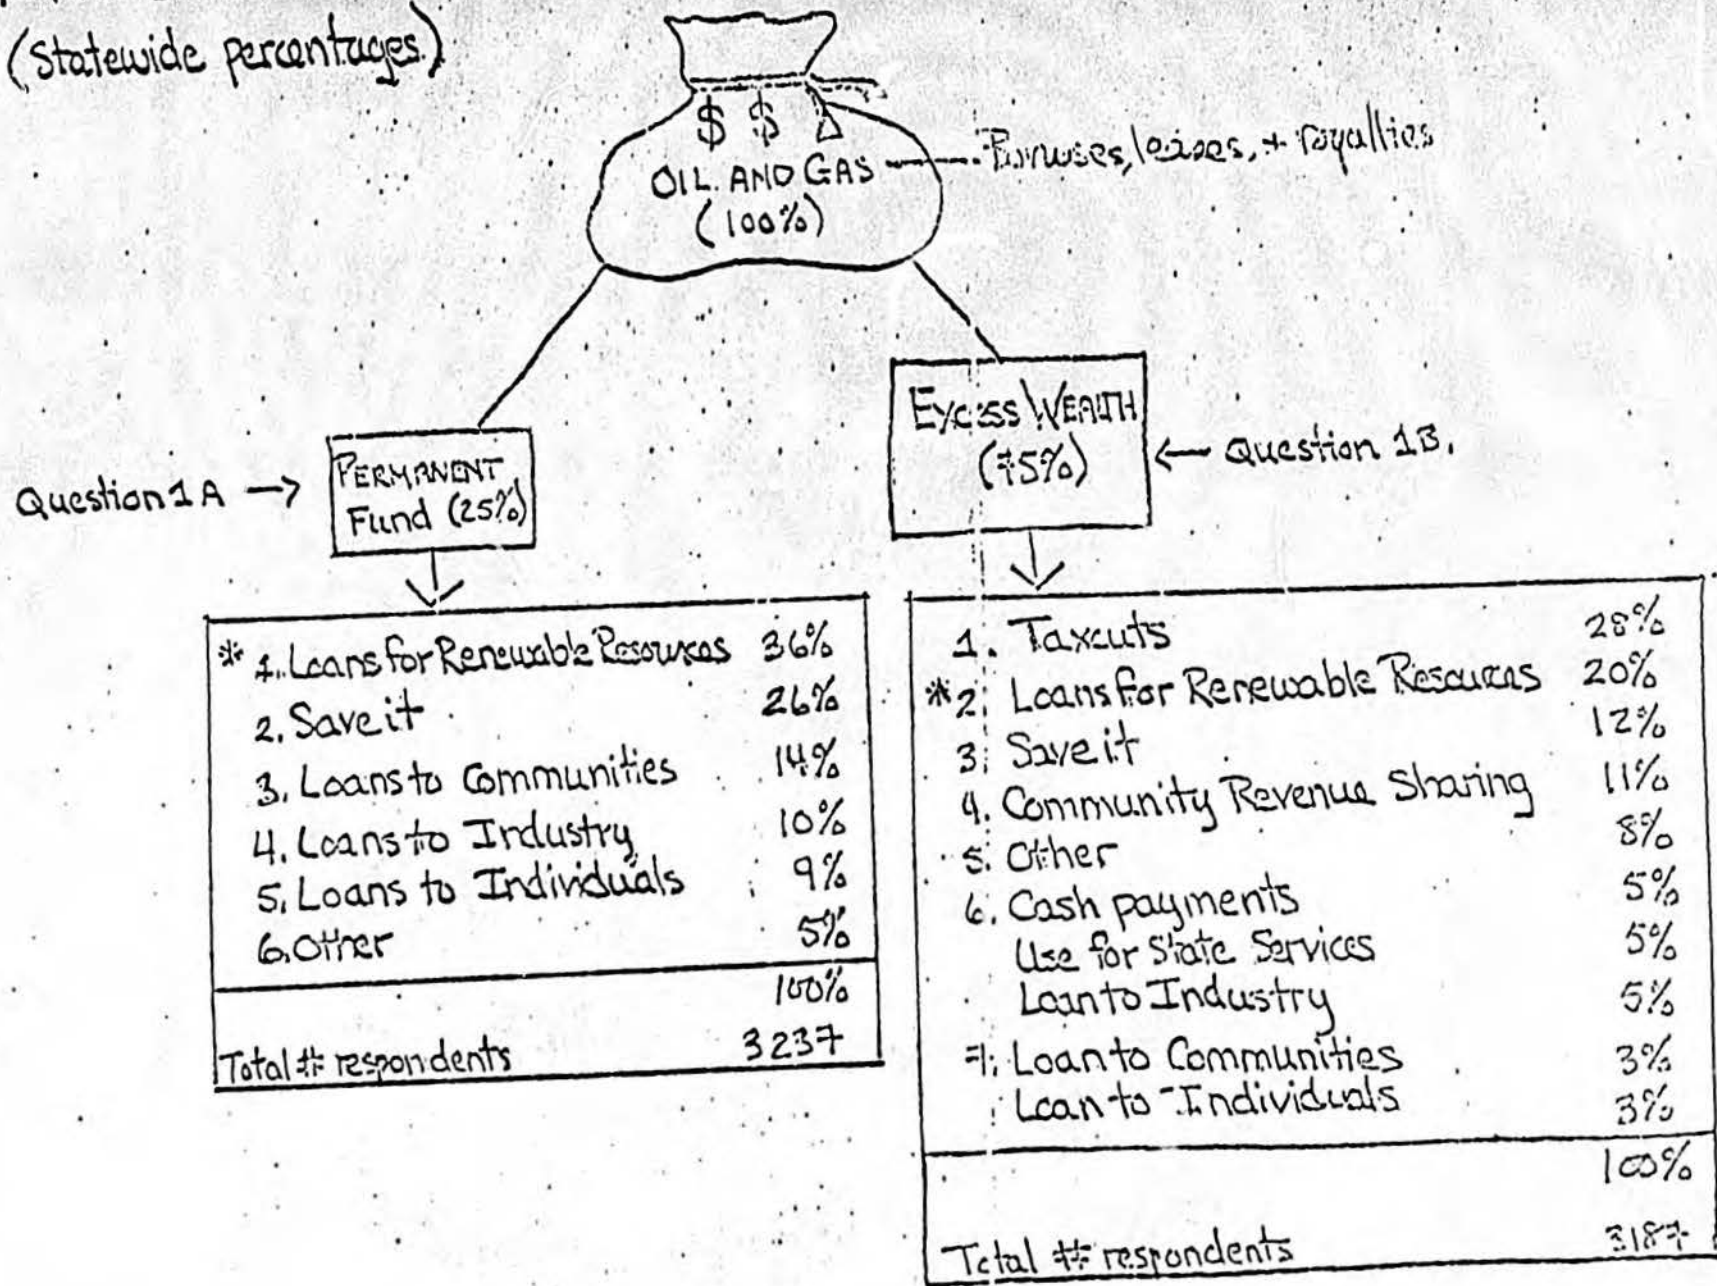 (Statewide percentages)
$ $ $
OIL AND GAS
(100%)
Bonuses, leases, + royallties
Question 1A →
PERMANENT
Fund (25%)
EXCESS WEALTH
(75%)
← Question 1B.
* 1. Loans for Renewable Resources 36%
2. Save it 26%
3. Loans to Communities 14%
4. Loans to Industry 10%
5. Loans to Individuals 9%
6. Other 5%
100%
Total # respondents 3237
1. Taxcuts 28%
* 2. Loans for Renewable Resources 20%
3. Save it 12%
4. Community Revenue Sharing 11%
5. Other 8%
6. Cash payments 5%
Use for State Services 5%
Loan to Industry 5%
7. Loan to Communities 3%
Loan to Individuals 3%
100%
Total # respondents 3187